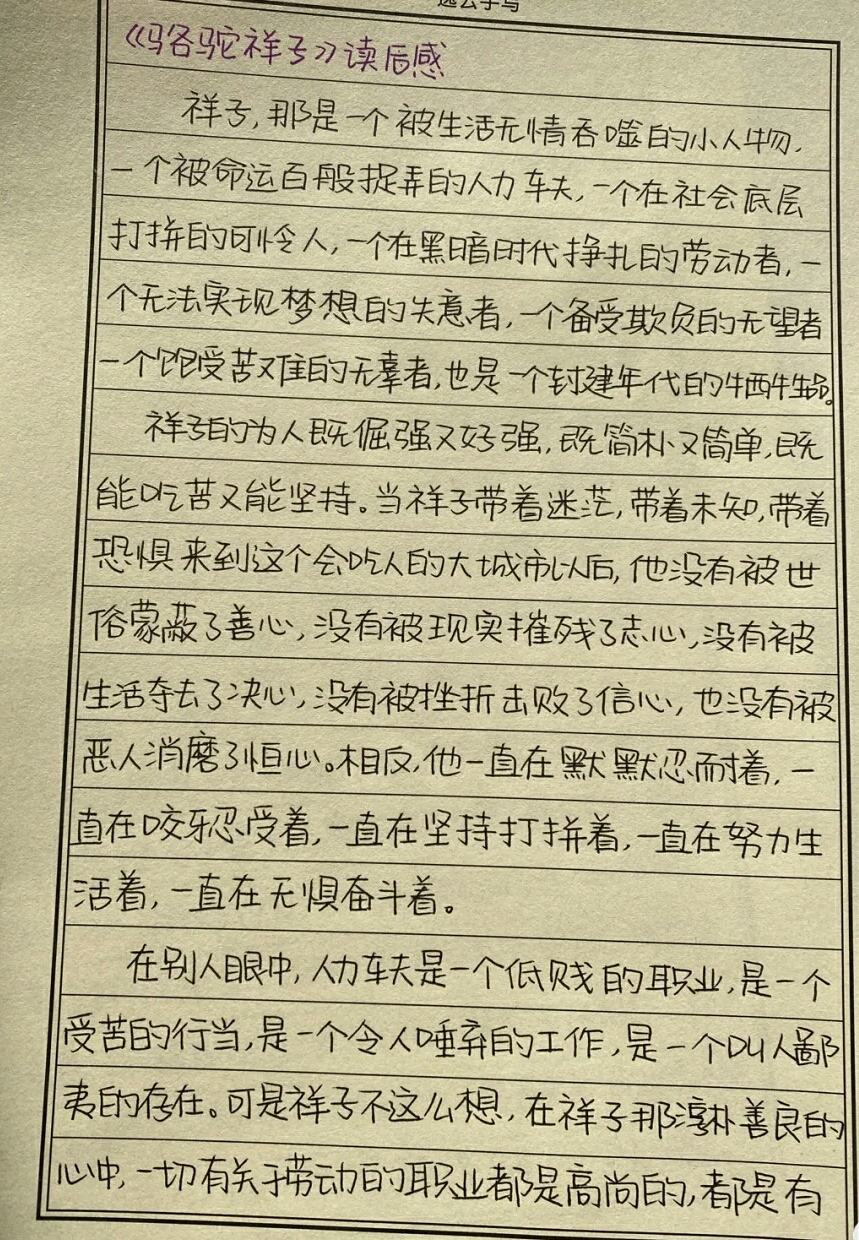 《骆驼祥子》读后感
祥子,那是一个被生活无情吞噬的小人物,
一个被命运百般捉弄的人力车夫,一个在社会底层
打拼的可怜人,一个在黑暗时代挣扎的劳动者,一
个无法实现梦想的失意者,一个备受欺负的无望者
一个饱受苦难的无辜者,也是一个封建年代的牺牲品。
祥子的为人既倔强又好强,既简朴又简单,既
能吃苦又能坚持。当祥子带着迷茫,带着未知,带着
恐惧来到这个会吃人的大城市以后,他没有被世
俗蒙蔽了善心,没有被现实摧残了志心,没有被
生活夺去了决心,没有被挫折击败了信心,也没有被
恶人消磨了恒心。相反,他一直在默默忍耐着,一
直在咬牙忍受着,一直在坚持打拼着,一直在努力生
活着,一直在无惧奋斗着。
在别人眼中,人力车夫是一个低贱的职业,是一个
受苦的行当,是一个令人唾弃的工作,是一个叫人鄙
夷的存在。可是祥子不这么想,在祥子那淳朴善良的
心中,一切有关于劳动的职业都是高尚的,都是有